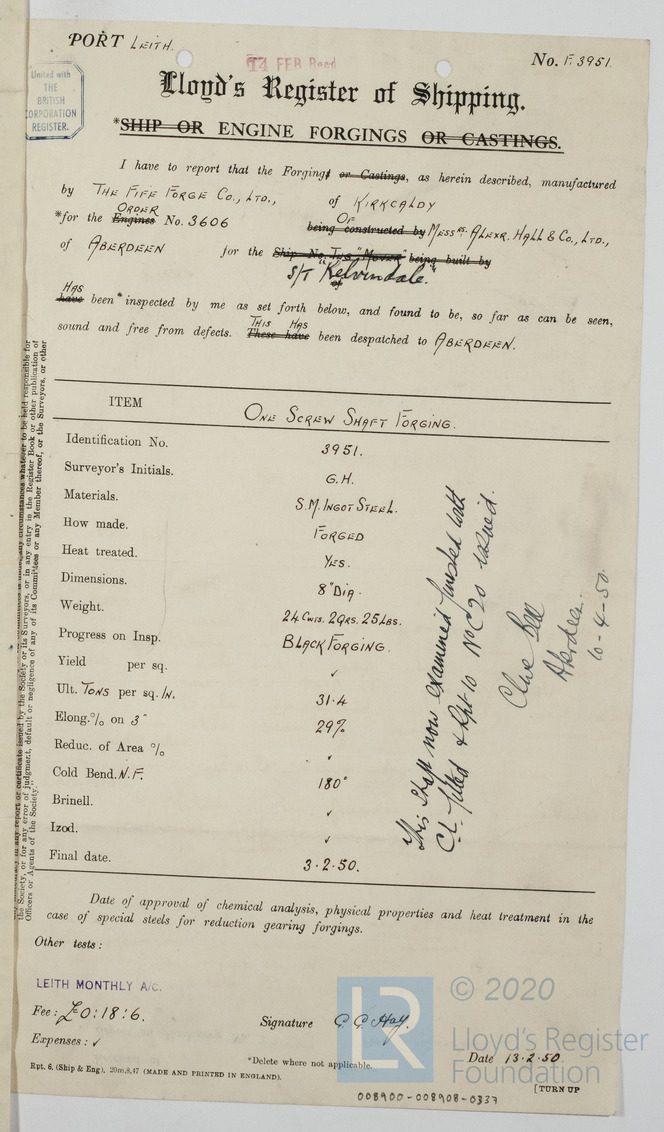 PORT LEITH.
No. F.3951.
14 FEB Recd
United with
THE
BRITISH
CORPORATION
REGISTER.
Lloyd's Register of Shipping.
*SHIP OR ENGINE FORGINGS OR CASTINGS.
I have to report that the Forgings or Castings, as herein described, manufactured
by THE FIFE FORGE CO., LTD., of KIRKCALDY
ORDER OF
*for the Engines No. 3606 being constructed by MESSRS. ALEXR. HALL & CO., LTD.,
of ABERDEEN for the Ship No. TUG "MOVER" being built by
S/T "Kelvindale."
of
HAS
have been* inspected by me as set forth below, and found to be, so far as can be seen,
THIS HAS
sound and free from defects. These have been despatched to ABERDEEN.
ITEM ONE SCREW SHAFT FORGING.
Identification No. 3951.
Surveyor's Initials. G.H.
Materials. S.M. INGOT STEEL.
How made. FORGED
Heat treated. YES.
Dimensions. 8" DIA.
Weight. 24 CWTS. 2 QRS. 25 LBS.
Progress on Insp. BLACK FORGING.
Yield per sq. ✓
Ult. TONS per sq. IN. 31.4
Elong. % on 3" 29%
Reduc. of Area % ✓
Cold Bend. N.F. 180°
Brinell. ✓
Izod. ✓
Final date. 3.2.50.
This Shaft now examined finished with
C.L. fitted & Rpt 10 No C20 issued.
Clive Bell
Aberdeen.
10-4-50.
Date of approval of chemical analysis, physical properties and heat treatment in the
case of special steels for reduction gearing forgings.
Other tests:
LEITH MONTHLY A/C.
Fee: £0:18:6.
Signature G. G. Hay.
Expenses: ✓
*Delete where not applicable.
Date 13.2.50.
Rpt. 6. (Ship & Eng). 20m,8,47 (MADE AND PRINTED IN ENGLAND).
[TURN UP
008900-008908-0337
LR
© 2020
Lloyd's Register
Foundation
circumstances whatever to be held responsible for
any report or certificate issued by the Society or its Surveyors, or in any entry in the Register Book or other publication of
the Society, or for any error of judgment, default or negligence of any of its Committees or any Member thereof, or the Surveyors, or other
Officers or Agents of the Society."